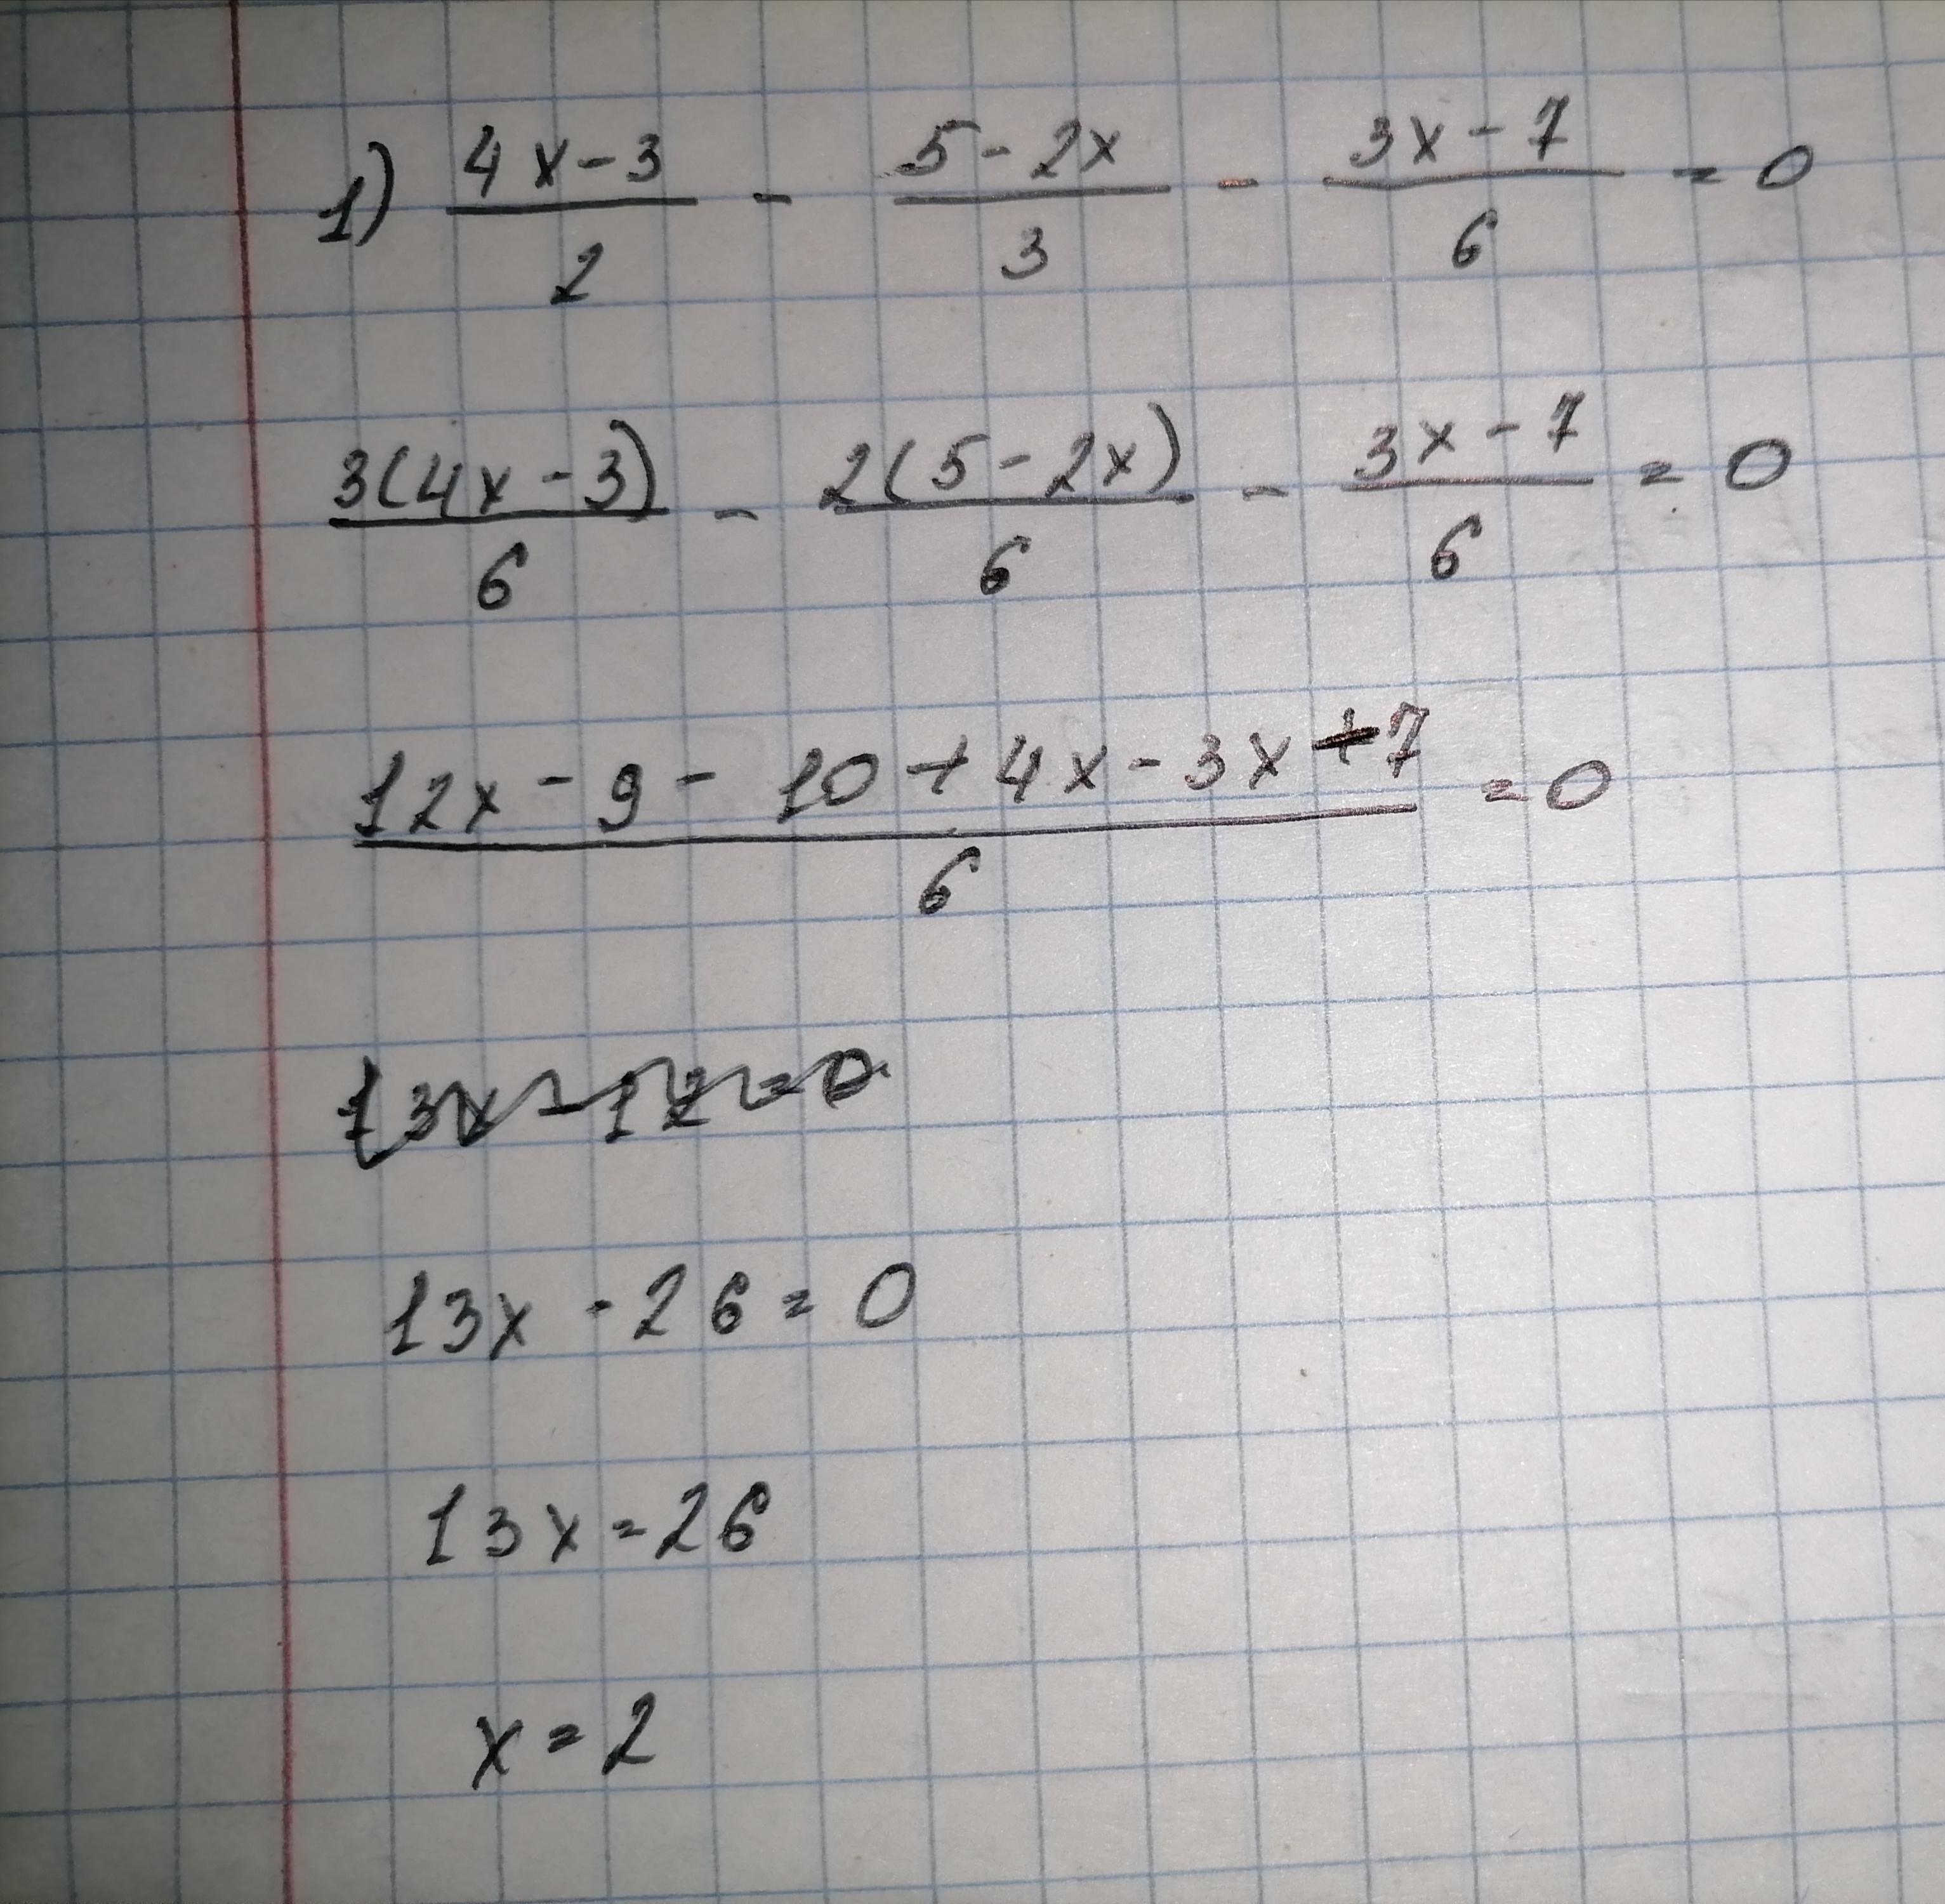 1) (4x-3)/2 - (5-2x)/3 - (3x-7)/6 = 0
3(4x-3)/6 - 2(5-2x)/6 - (3x-7)/6 = 0
(12x-9-10+4x-3x+7)/6 = 0
13x-12=0
13x-26=0
13x=26
x=2